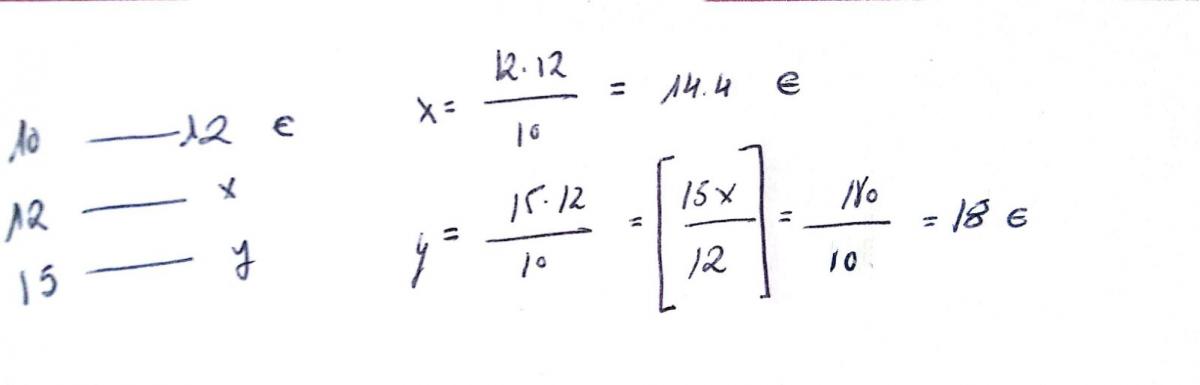 10 —— 12 €
12 —— x
15 —— y
x = 12·12 / 10 = 14.4 €
y = 15·12 / 10 = [15x / 12] = 180 / 10 = 18 €